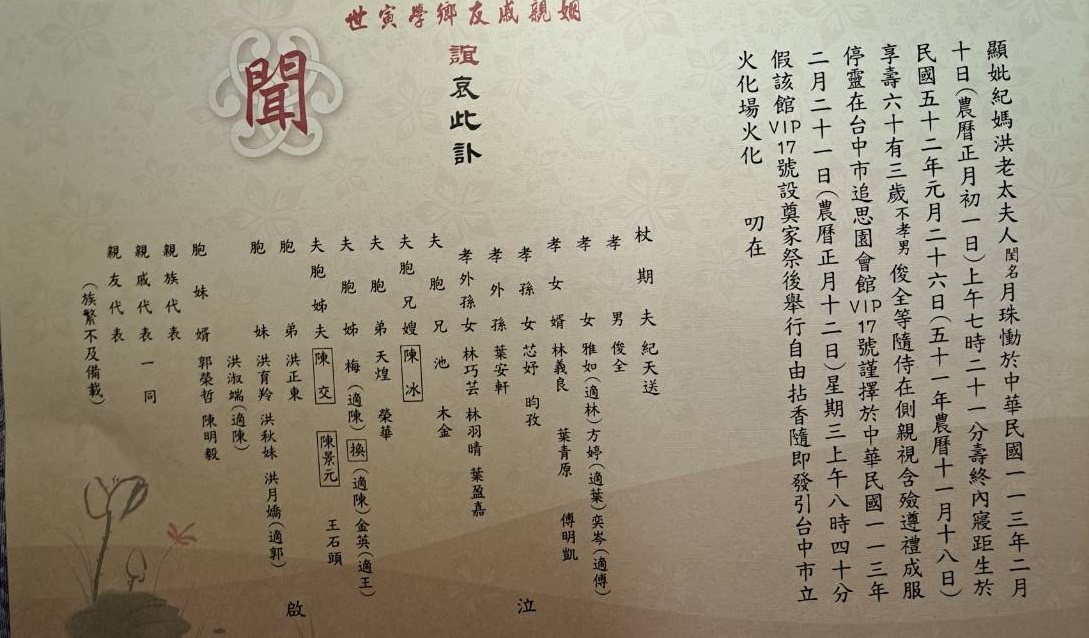 顯妣紀媽洪老太夫人閨名月珠慟於中華民國一一三年二月
十日(農曆正月初一日)上午七時二十一分壽終內寢距生於
民國五十二年元月二十六日(五十一年農曆十一月十八日)
享壽六十有三歲不孝男俊全等隨侍在側親視含殮遵禮成服
停靈在台中市追思園會館VIP17號謹擇於中華民國一一三年
二月二十一日(農曆正月十二日)星期三上午八時四十分
假該館VIP17號設奠家祭後舉行自由拈香隨即發引台中市立
火化場火化 叨在
姻親戚友鄉學寅世
誼哀此訃
聞
杖期夫 紀天送
孝男 俊全
孝女 雅如(適林)方婷(適葉)奕岑(適傅)
孝女婿 林義良 葉青原 傅明凱
孝孫女 芯妤 昀孜
孝外孫 葉安軒
孝外孫女 林巧芸 林羽晴 葉盈嘉
泣
夫胞兄 池 木金
夫胞兄嫂 陳冰
夫胞弟 天煌 榮華
夫胞姊 梅(適陳)換(適陳)金英(適王)
夫胞姊夫 陳交 陳景元 王石頭
胞弟 洪正東
胞妹 洪育羚 洪秋妹 洪月嬌(適郭)
洪淑端(適陳)
胞妹婿 郭榮哲 陳明毅
啟
親族代表
親戚代表 一同
親友代表
(族繁不及備載)